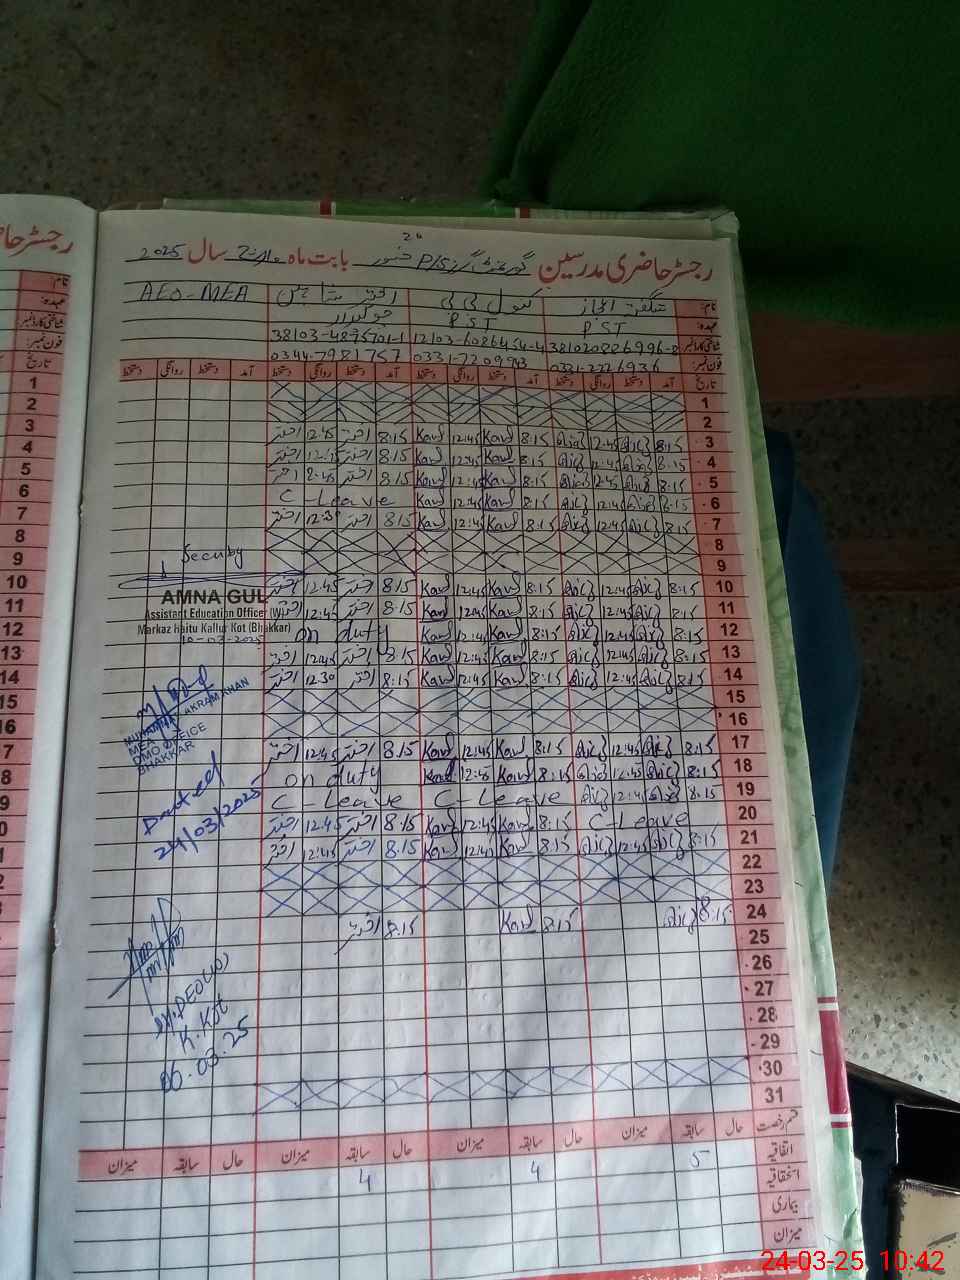 رجسٹر حاضری مدرسین گورنمنٹ گرلز P/S بابت ماہ مارچ سال 2025
نام: شگفتہ اعجاز کنول بی بی اختر AEO-MEA
عہدہ: PST PST چوکیدار
شناختی کارڈ نمبر: 12103-6086454-4 38103-4875701-1
فون نمبر: 0331-2226936 0344-7981757
تاریخ آمد دستخط روانگی دستخط آمد دستخط روانگی دستخط آمد دستخط روانگی دستخط آمد دستخط روانگی دستخط
1
2
3 8:15 12:45 8:15 Kanwl 12:45 Kanwl 8:15 اختر 12:45 اختر
4 8:15 12:45 8:15 Kanwl 12:45 Kanwl 8:15 اختر 12:45 اختر
5 8:15 12:45 8:15 Kanwl 12:45 Kanwl 8:15 اختر 12:45 اختر
6 8:15 12:45 8:15 Kanwl 12:45 Kanwl C-Leave
7 8:15 12:45 8:15 Kanwl 12:45 Kanwl 8:15 اختر 12:30 اختر
8
9
Security
10 8:15 12:45 8:15 Kanwl 12:45 Kanwl 8:15 اختر 12:45 اختر
AMNA GUL
11 8:15 12:45 8:15 Kanwl 12:45 Kanwl 8:15 اختر 12:45 اختر
Assistant Education Officer (W)
Markaz Haitu Kallur Kot (Bhakkar)
12 8:15 12:45 8:15 Kanwl 12:45 Kanwl on duty
10-03-2025
13 8:15 12:45 8:15 Kanwl 12:45 Kanwl 8:15 اختر 12:45 اختر
14 8:15 12:45 8:15 Kanwl 12:45 Kanwl 8:15 اختر 12:30 اختر
15
16
MUHAMMAD AKRAM KHAN
MEA
DMO OFFICE
BHAKKAR
17 8:15 12:45 8:15 Kanwl 12:45 Kanwl 8:15 اختر 12:45 اختر
18 8:15 12:45 8:15 Kanwl 12:45 Kanwl on duty
19 8:15 12:45 C-Leave C-Leave
Dated
24/03/2025
20 C-Leave 8:15 Kanwl 12:45 Kanwl 8:15 اختر 12:45 اختر
21 8:15 12:45 8:15 Kanwl 12:45 Kanwl 8:15 اختر 12:45 اختر
22
23
24 8:15 8:15 Kanwl 8:15 اختر
25
26
27
Dy.DEO(W)
K.Kot
06.03.25
28
29
30
31
قسم رخصت حال سابقہ میزان حال سابقہ میزان حال سابقہ میزان حال سابقہ میزان
اتفاقیہ 5 4 4
استحقاقیہ
بیماری
میزان
24-03-25 10:42